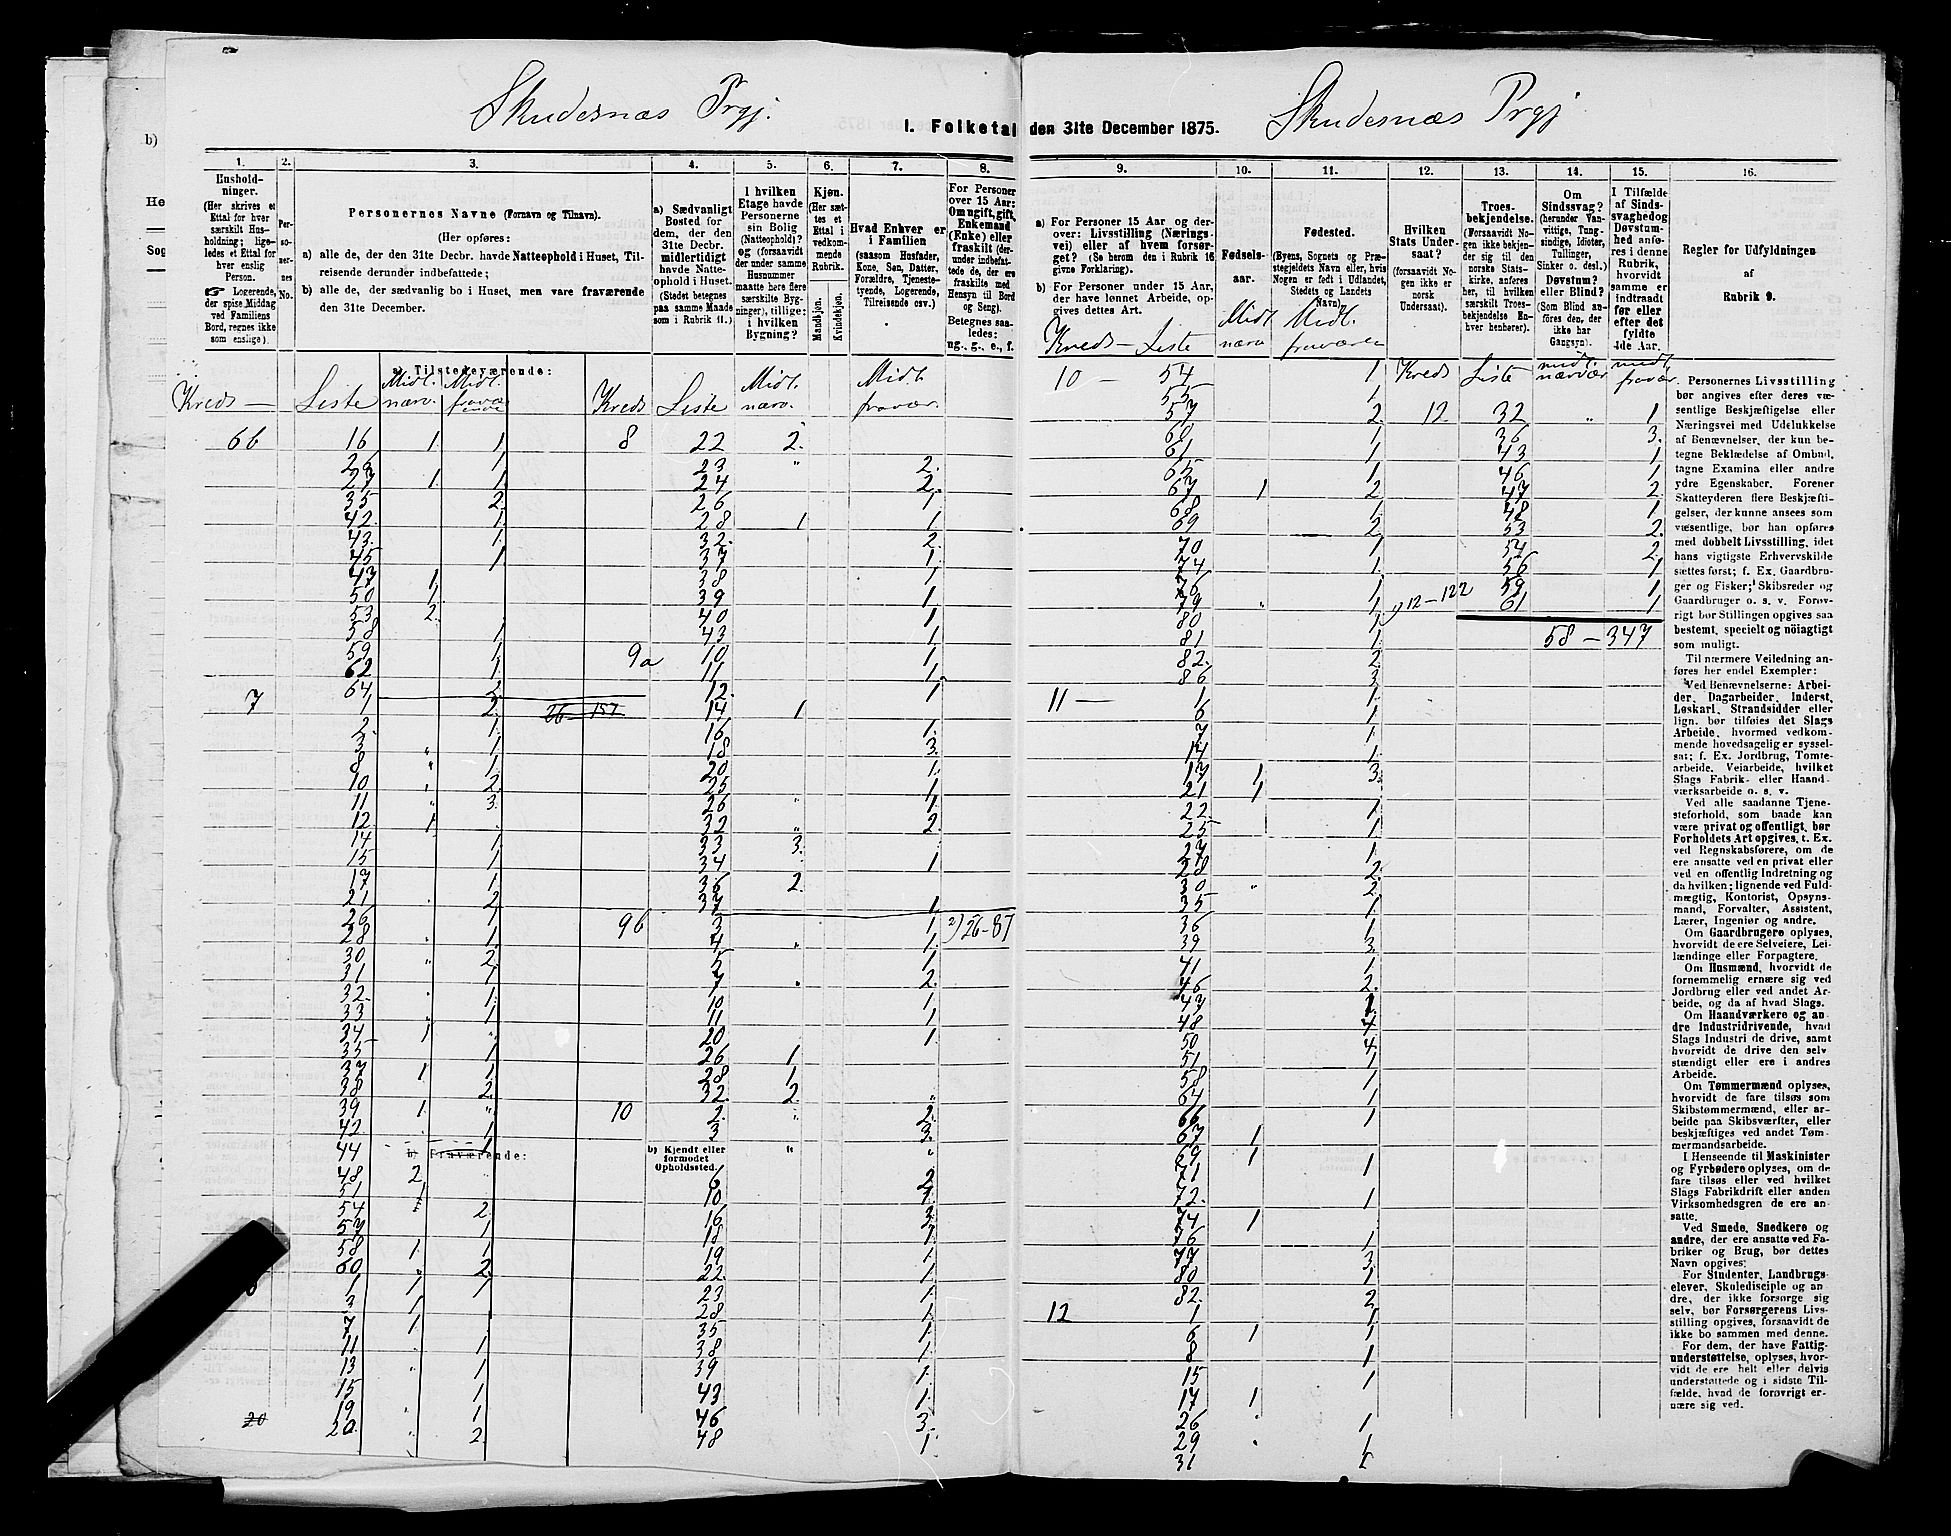 Skudesnæs Prgj.
Skudesnæs Prgj
I. Folketal den 31te December 1875.
b)
He
Sog
1.
2.
3.
4.
5.
6.
7.
8.
9.
10.
11.
12.
13.
14.
15.
16.
Hushold-
ninger.
(Her skrives et
Ettal for hver
særskilt Hus-
holdning; lige-
ledes et Ettal for
hver enslig
Person.
☛ Logerende,
der spise Middag
ved Familiens
Bord, regnes ikke
som enslige).
Per-
so-
ner-
nes
No.
Personernes Navne (Fornavn og Tilnavn).
(Her opføres:
a) alle de, der den 31te Decbr. havde Natteophold i Huset, Til-
reisende derunder indbefattede;
b) alle de, der sædvanlig bo i Huset, men vare fraværende
den 31te December.
a) Sædvanligt
Bosted for
dem, der den
31te Decbr.
midlertidigt
havde Natte-
ophold i Huset.
(Stedet betegnes
paa samme Maade
som i Rubrik 11.)
I hvilken
Etage havde
Personerne
sin Bolig
(Natteophold)?
og (forsaavidt
der under samme
Husnummer
maatte høre flere
særskilte Byg-
ninger), tillige:
i hvilken
Bygning?
Kjøn.
(Her sæt-
tes et
Ettal i
vedkom-
mende
Rubrik.
Mandkjøn.
Kvindekjøn.
Hvad Enhver er
i Familien
(saasom Husfader,
Kone, Søn, Datter,
Forældre, Tjeneste-
tyende, Logerende,
Tilreisende osv.)
For Personer
over 15 Aar:
Om ugift, gift,
Enkemand
(Enke) eller
fraskilt (der-
under indbefat-
tede de, der ere
fraskilte med
Hensyn til Bord
og Seng).
Betegnes saa-
ledes:
ug., g., e., f.
a) For Personer 15 Aar og der-
over: Livsstilling (Nærings-
vei) eller af hvem forsør-
get? (Se herom den i Rubrik 16
givne Forklaring).
b) For Personer under 15 Aar,
der have lønnet Arbeide, op-
gives dettes Art.
Fødsels-
aar.
Fødested.
(Byens, Sognets og Præ-
stegjeldets Navn eller, hvis
Nogen er født i Udlandet,
Stedets og Landets
Navn).
Hvilken
Stats Under-
saat?
(forsaavidt No-
gen ikke er
norsk
Undersaat).
Troes-
bekjendelse.
(Forsaavidt No-
gen ikke bekjen-
der sig til den
norske Stats-
kirke, anføres
her, til hvilken
særskilt Troes-
bekjendelse En-
hver henhører).
Om
Sindssvag?
(herunder Van-
vittige, Tung-
sindige, Idioter,
Tullinger,
Sinker o. desl.)
Døvstum?
eller Blind?
(Som Blind an-
føres den, der
ikke har
Gangsyn).
I Tilfælde
af Sinds-
svaghed og
Døvstum-
hed anfø-
res i denne
Rubrik,
hvorvidt
samme er
indtraadt
før eller
efter det
fyldte
4de Aar.
Regler for Udfyldningen
af
Rubrik 9.
a) Tilstedeværende:
Kreds — Liste Midl. nærv. Midl. fraværende Kreds Liste Midl. nærv. Midl. fravær.
Kreds — Liste Midl nærv Midl. fraværen Kreds Liste midl. nærvær midl. fravær.
6b 16 1. 1.
26 1
27 1. 1.
35 2.
42. 1.
43. 1.
45 1
47 1.
50 1.
53 2.
58 1
59 1.
62 1
64 2.
7 1 2. 26 — 157
2. 1.
3 „ 1
8 „ 1
10 2.
11 „ 3.
12. 1.
14 1
15 1
17 1
21 2
26 1
28 1
30 „ 2.
31 1
32. 1.
33 1
34 1 „
35 1
37 1 1
38 2.
39 1. „
42. 1
44 1
b) Fraværende:
48 2
51 1
54 2.
57 1
58 1. 1
60 2.
1 1 1
3 1
7 1
11 1
13 1
15 1
19 1
20 20. 2.
8 22 2.
23 „ 2.
24 2.
26 1
28 1 1
32. 2.
37 1.
38 1
39 1
40 1
43 1
9a 10 1
11 1.
12. 1
14 1
16 1.
18 3.
20 1.
25 1
26 „ 1.
32 „ 2.
33 3.
34 1
36 2.
37 1
9b 3 1 2) 26-87
4 „ 1.
5 1
7 „ 2.
10 1
11 1
20 1.
26 1
28 1
32. 2. „
10 2. „ 2.
3 3.
b) Kjendt eller
formodet
Opholdssted.
„ „
6 2
10 1.
16 3
18 1
19 1
22. 1.
23 1.
28 1
35 1.
38 1.
39 1.
43 1.
46 3.
48 1.
10 — 54 1
55 1
57 2.
60 1
61 1
65 1
67 1 2
68 1
69 2
70 1
74 1.
76 1
79 „ 1
80 1
81 1.
82. 2.
86 3
11 — 1 1.
6 1
7 1
14 1
17 1 3.
21 1
22. 1
25 1
27 1
28 2.
30 „ 2.
35 1
36 1
39 3.
41 1
46 2.
47 1
48 4
50 4
51 1
58 1
64 1
66 1
67 1
69 1 1
71
72. 1
74 1
76 1
77 3
80 1
82. 2
12 1 1
6 1 1
8 1
15 1
17 1
26 1
29 1
31 1
12. 32 „ 1
36 3.
43 1
46 1
47 2.
48 1
53 2.
54 2.
56 1
59 1
61 1
1) 12 — 122
58 — 347
Personernes Livsstilling
bør angives efter deres væ-
sentlige Beskjæftigelse eller
Næringsvei med Udelukkelse
af Benævnelser, der kun be-
tegne Beklædelse af Ombud,
tagne Examina eller andre
ydre Egenskaber. Forener
Skatteyderen flere Beskjæfti-
gelser, der kunne ansees som
væsentlige, bør han opføres
med dobbelt Livsstilling, idet
hans vigtigste Erhvervskilde
sættes først; f. Ex. Gaardbru-
ger og Fisker; Skibsreder og
Gaardbruger o. s. v. Forøv-
rigt bør Stillingen opgives saa
bestemt, specielt og nöiagtigt
som muligt.
Til nærmere Veiledning an-
føres her endel Exempler:
Ved Benævnelserne: Arbei-
der, Dagarbeider, Inderst,
Løskarl, Strandsidder eller
lign. bør tilføies det Slags
Arbeide, hvormed vedkom-
mende hovedsagelig er syssel-
sat; f. Ex. Jordbrug, Tomte-
arbeide, Veiarbeide, hvilket
Slags Fabrik- eller Haand-
værksarbeide o. s. v.
Ved alle saadanne Tjene-
steforhold, som baade kan
være privat og offentligt, bør
Forholdets Art opgives, t. Ex.
ved Regnskabsførere, om de
ere ansatte ved en privat eller
ved en offentlig Indretning og
da hvilken; lignende ved Fuld-
mægtig, Kontorist, Opsyns-
mand, Forvalter, Assistent,
Lærer, Ingeniør og andre.
Om Gaardbrugere oplyses,
hvorvidt de ere Selveiere, Lei-
lændinge eller Forpagtere.
Om Husmænd, hvorvidt de
fornemmelig ernære sig ved
Jordbrug eller ved andet Ar-
beide, og da af hvad Slags.
Om Haandværkere og an-
dre Industridrivende, hvad
Slags Industri de drive, samt
hvorvidt de drive den selv-
stændigt eller ere i andres
Arbeide.
Om Tømmermænd oplyses,
hvorvidt de fare tilsøs som
Skibstømmermænd, eller ar-
beide paa Skibsværfter, eller
beskjæftiges ved andet Tøm-
mermandsarbeide.
I Henseende til Maskinister
og Fyrbødere oplyses, om de
fare tilsøs eller ved hvilket
Slags Fabrikdrift eller anden
Virksomhedsgren de ere an-
satte.
Ved Smede, Snedkere og
andre, der ere ansatte ved Fa-
briker og Brug, bør dettes
Navn opgives;
For Studenter, Landbrugs-
elever, Skoledisciple og an-
dre, der ikke forsørge sig
selv, bør Forsørgerens Livs-
stilling opgives, forsaavidt de
ikke bo sammen med denne.
For dem, der have Fattig-
understøttelse, oplyses, hvor-
vidt de ere helt eller delvis
understøttede og i sidste Til-
fælde, hvad de forøvrigt er-
nære sig ved.